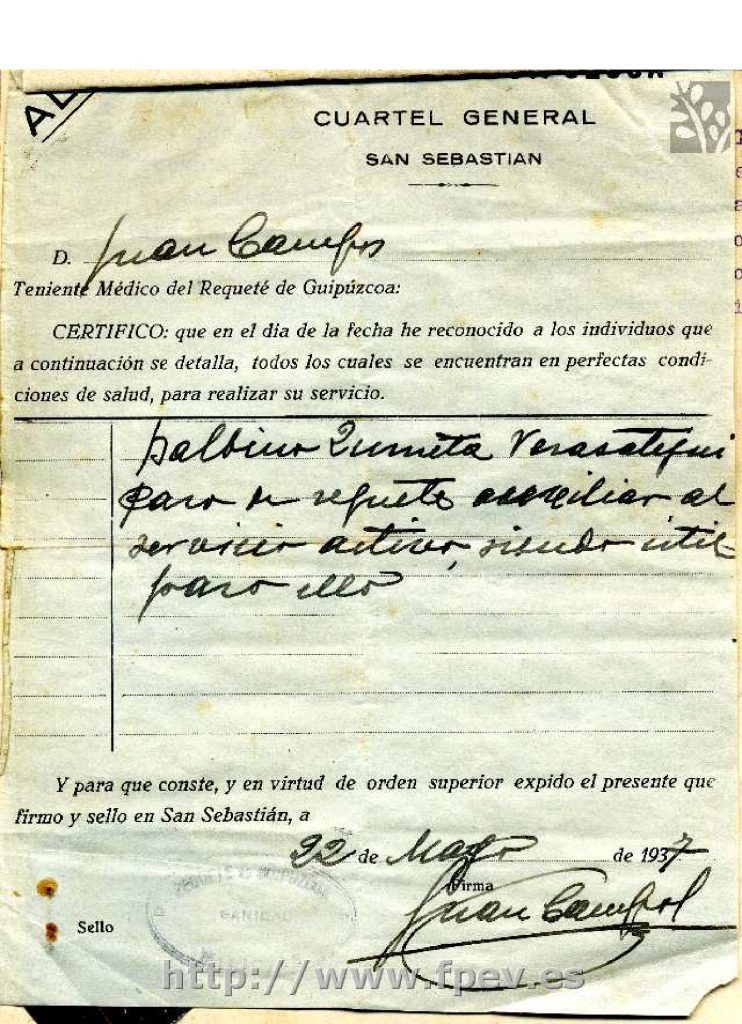 CUARTEL GENERAL
SAN SEBASTIAN
D. Juan Campos
Teniente Médico del Requeté de Guipúzcoa:
CERTIFICO: que en el dia de la fecha he reconocido a los individuos que
a continuación se detalla, todos los cuales se encuentran en perfectas condi-
ciones de salud, para realizar su servicio.
Balbino Zumeta Verasategui
paso de requete auxiliar al
servicio activo, siendo útil
para ello
Y para que conste, y en virtud de orden superior expido el presente que
firmo y sello en San Sebastián, a
22 de Mayo de 1937
Firma
Juan Campos
SANIDAD
Sello
http://www.fpev.es